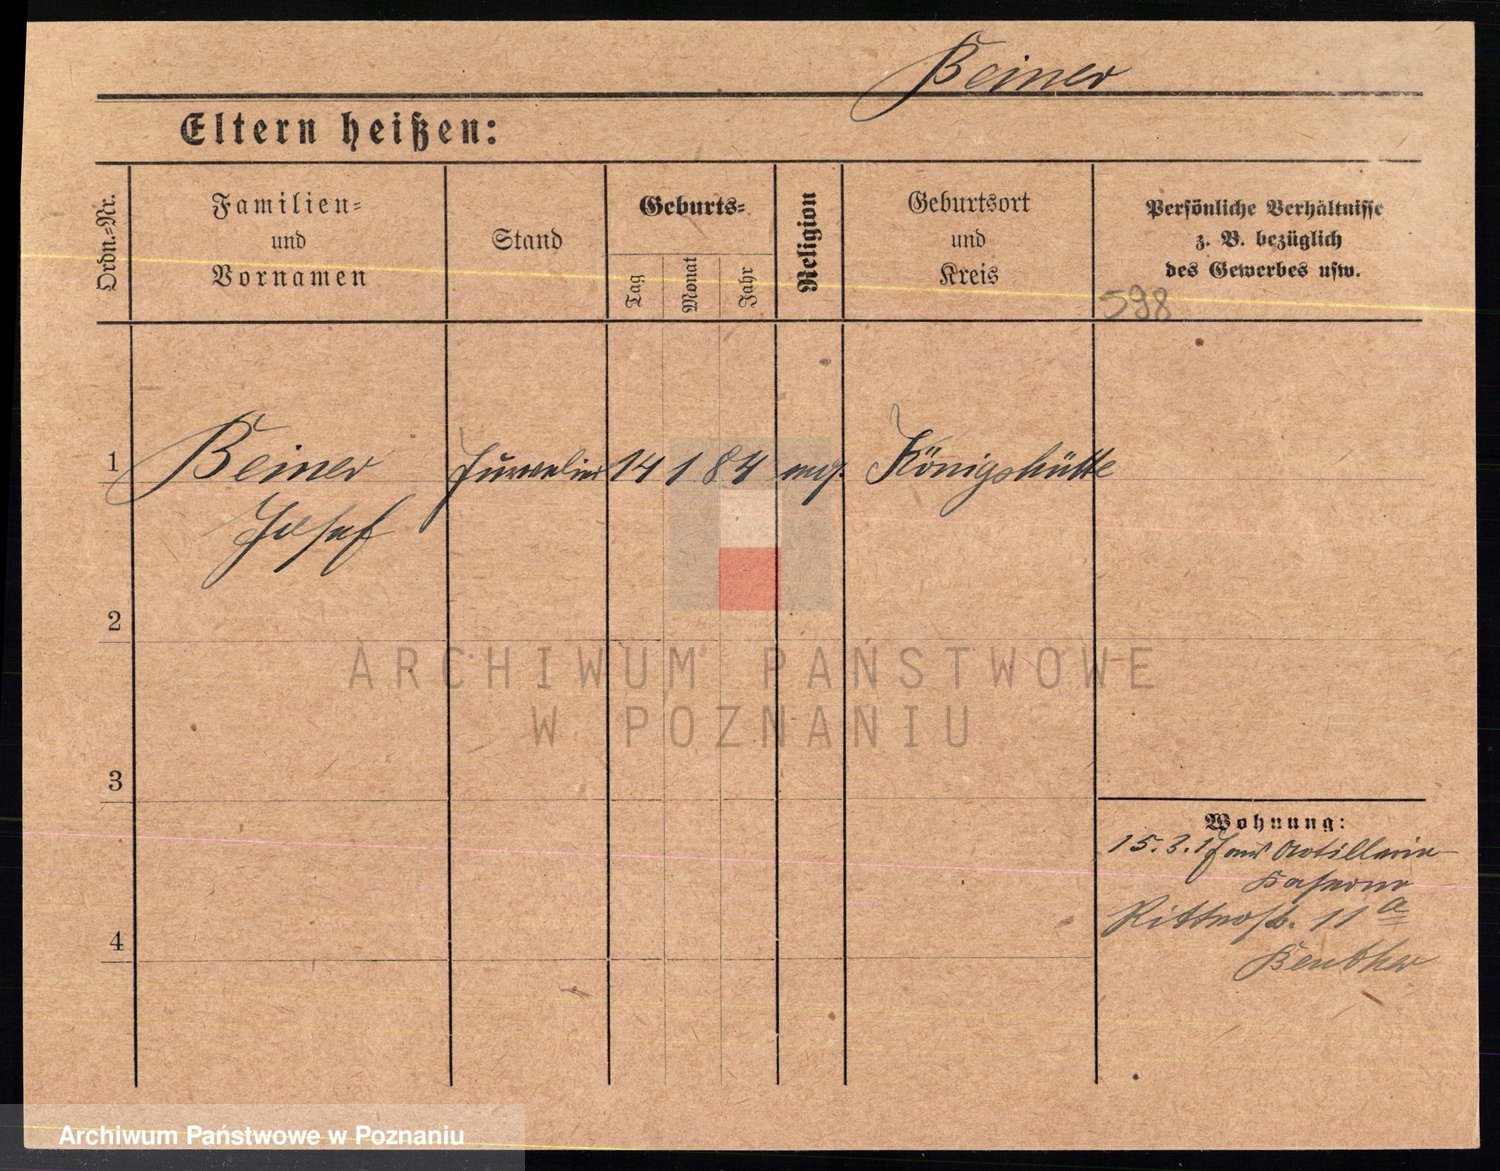 Beiner
Eltern heißen:
Ordn.-Nr.
Familien- und Vornamen
Stand
Geburts-
Tag
Monat
Jahr
Religion
Geburtsort und Kreis
Persönliche Verhältnisse
z. B. bezüglich
des Gewerbes usw.
598
1 Beiner Juwelier 14 1 84 Königshütte
Josef
2
ARCHIWUM PAŃSTWOWE
W POZNANIU
3
Wohnung:
15.3.17 aus Artillerie
Kaserne
Ritterstr. 11a
4
Archiwum Państwowe w Poznaniu